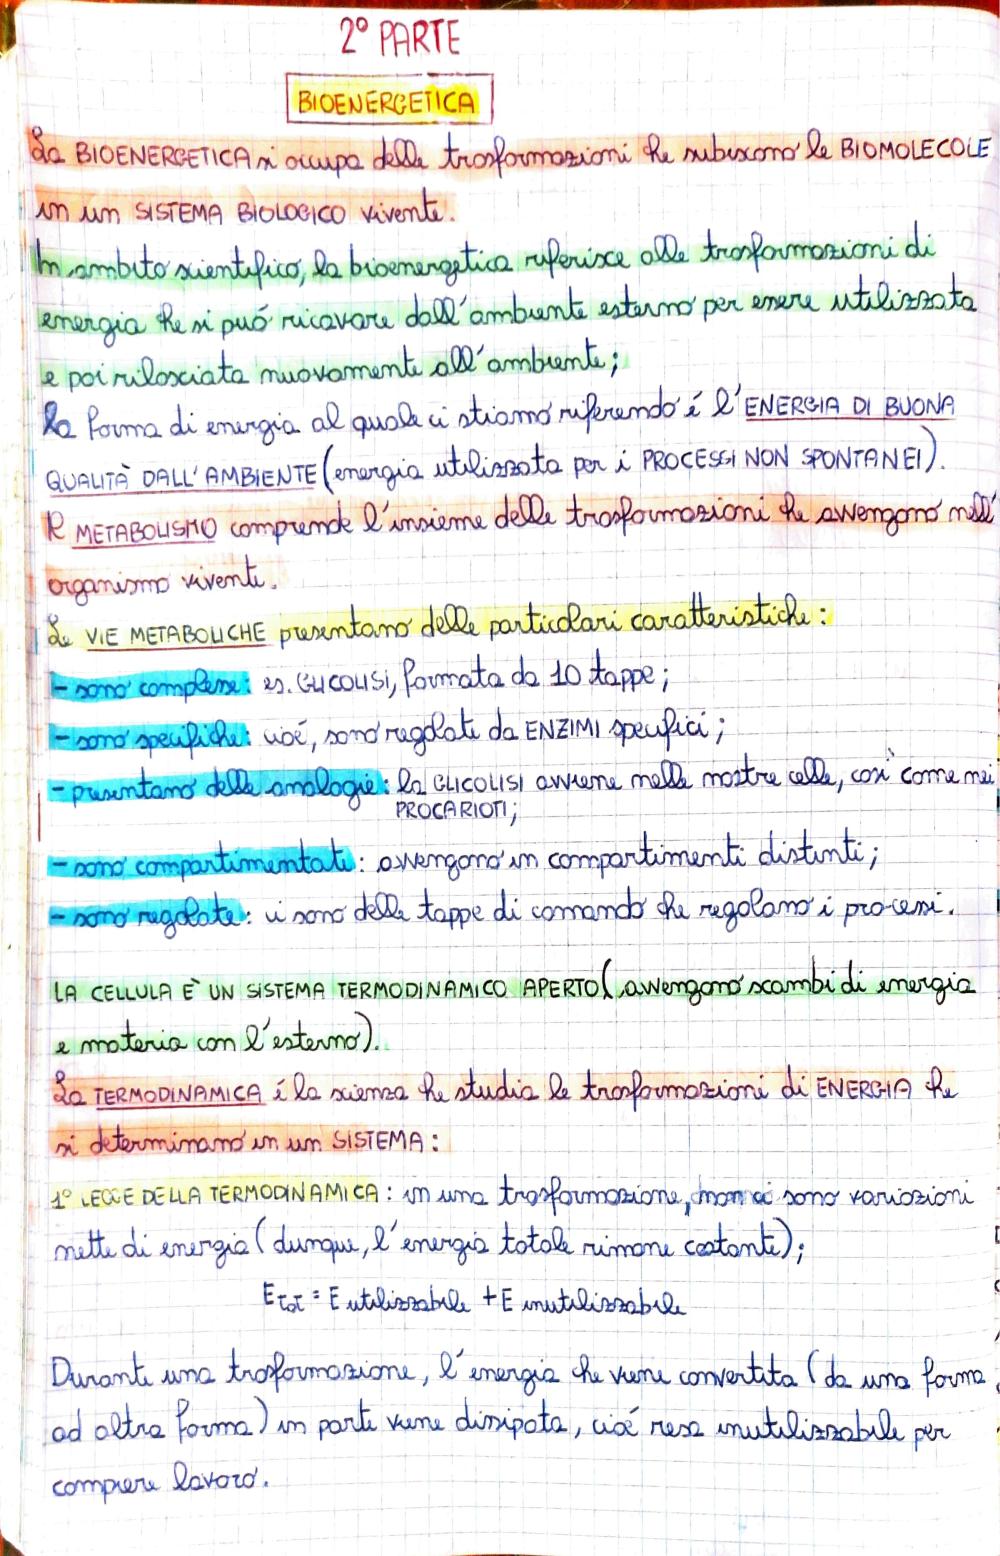 2° PARTE
BIOENERGETICA
La BIOENERGETICA si occupa delle trasformazioni che subiscono le BIOMOLECOLE
in un SISTEMA BIOLOGICO vivente.
In ambito scientifico, la bioenergetica riferisce alle trasformazioni di
energia che si può ricavare dall'ambiente esterno per essere utilizzata
e poi rilasciata nuovamente all'ambiente;
La forma di energia al quale ci stiamo riferendo é l'ENERGIA DI BUONA
QUALITÀ DALL'AMBIENTE (energia utilizzata per i PROCESSI NON SPONTANEI).
Il METABOLISMO comprende l'insieme delle trasformazioni che avvengono nell'
organismo vivente.
Le VIE METABOLICHE presentano delle particolari caratteristiche:
- sono complesse: es. GLICOLISI, formata da 10 tappe;
- sono specifiche: cioé, sono regolate da ENZIMI specifici;
- presentano delle analogie: la GLICOLISI avviene nelle nostre celle, così come nei
PROCARIOTI;
- sono compartimentate: avvengono in compartimenti distinti;
- sono regolate: ci sono delle tappe di comando che regolano i processi.
LA CELLULA È UN SISTEMA TERMODINAMICO APERTO (avvengono scambi di energia
e materia con l'esterno).
La TERMODINAMICA é la scienza che studia le trasformazioni di ENERGIA che
si determinano in un SISTEMA:
1° LEGGE DELLA TERMODINAMICA: in una trasformazione, non ci sono variazioni
nette di energia (dunque, l'energia totale rimane costante);
E TOT = E utilizzabile + E inutilizzabile
Durante una trasformazione, l'energia che viene convertita (da una forma
ad altra forma) in parte viene dissipata, cioé resa inutilizzabile per
compiere lavoro.